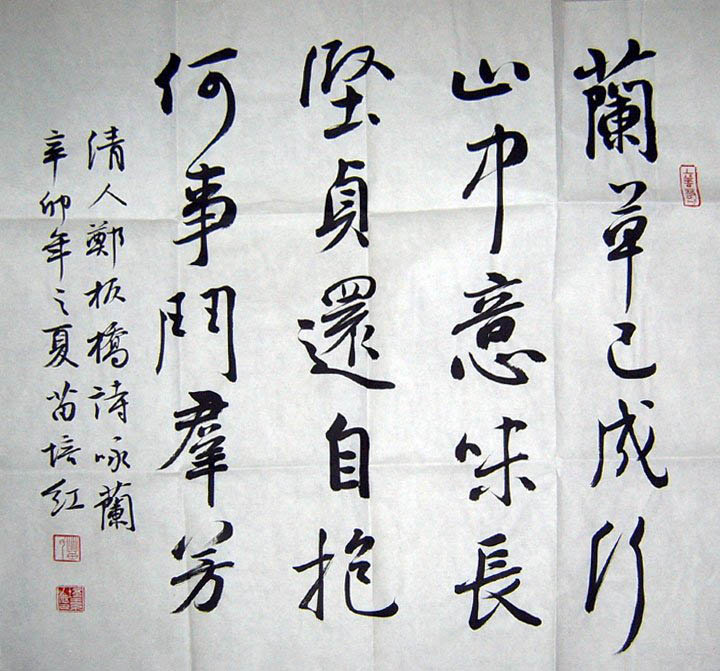 蘭草已成行
山中意味長
堅貞還自抱
何事鬥羣芳
清人鄭板橋詩咏蘭
辛卯年之夏苗培紅